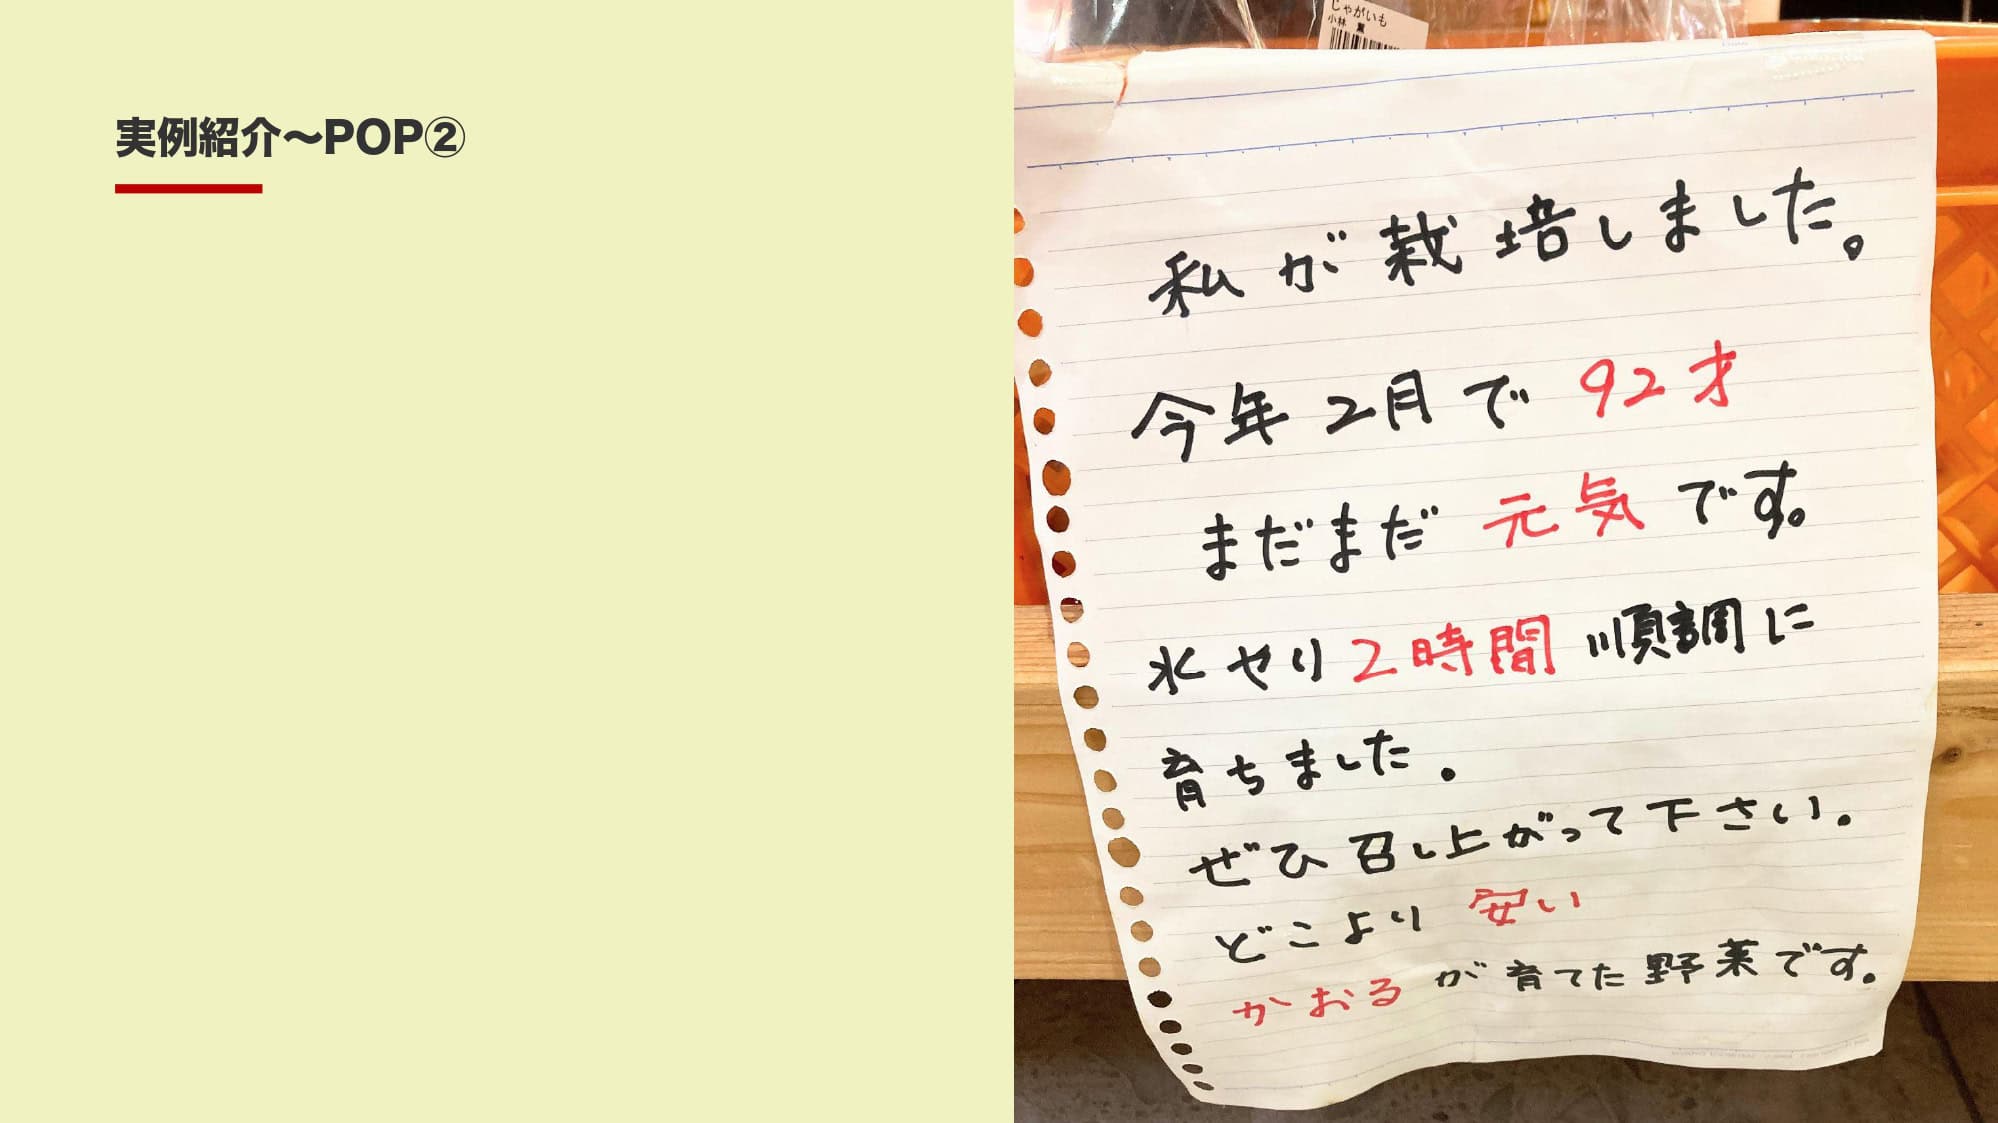 実例紹介～POP②
じゃがいも
小林 薫
私が栽培しました。
今年2月で92才
まだまだ元気です。
水やり2時間順調に
育ちました。
ぜひ召し上がって下さい。
どこより安い
かおるが育てた野菜です。